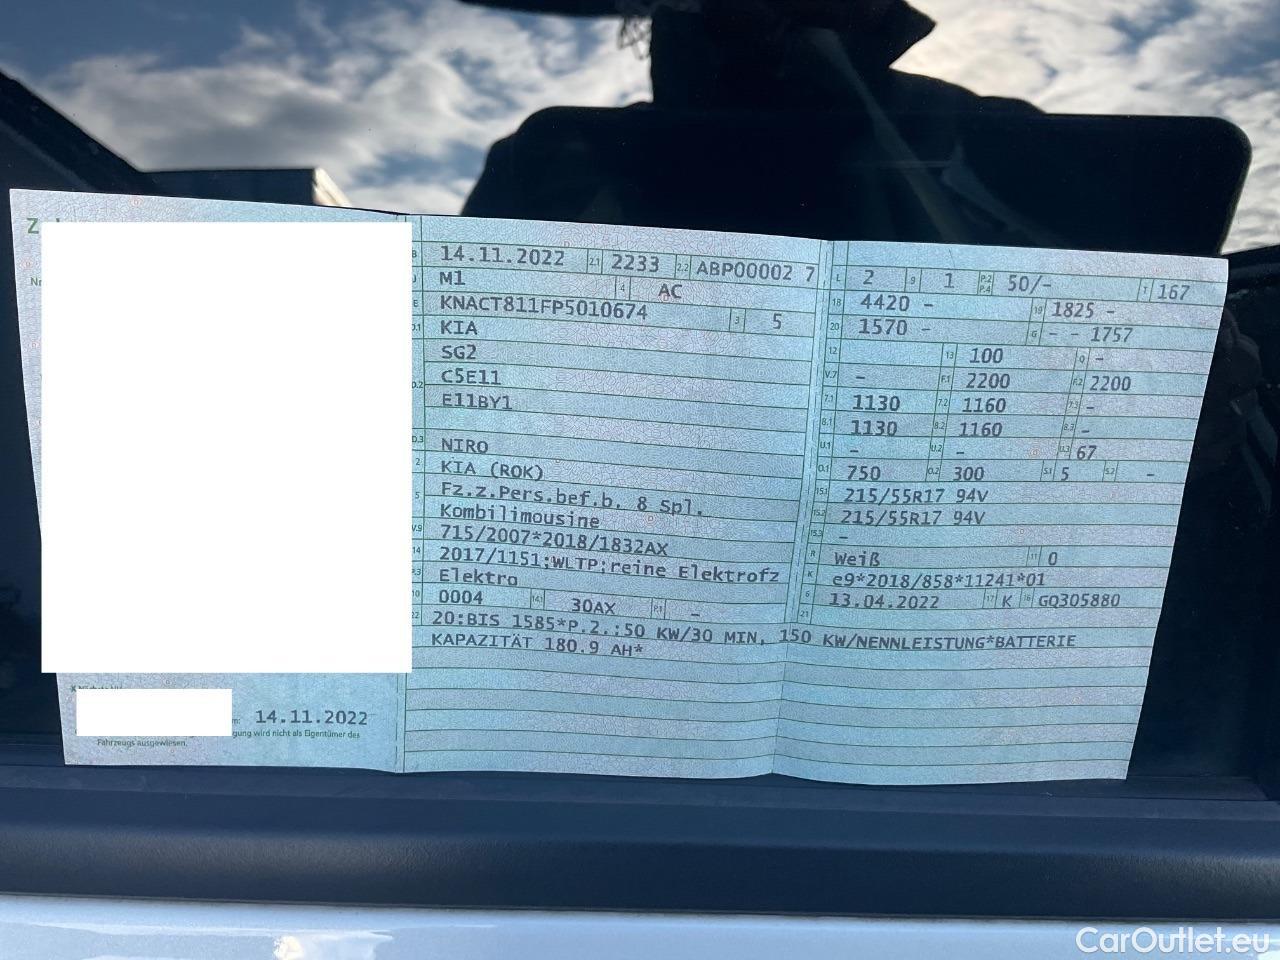 B 14.11.2022 2.1 2233 2.2 ABP00002 7
J M1 4 AC
E KNACT811FP5010674 3 5
D.1 KIA
SG2
D.2 C5E11
E11BY1
D.3 NIRO
2 KIA (ROK)
5 Fz.z.Pers.bef.b. 8 Spl.
Kombilimousine
V.9 715/2007*2018/1832AX
14 2017/1151;WLTP;reine Elektrofz
P.3 Elektro
10 0004 14.1 30AX P.1 –
L 2 9 1 P.2 P.4 50/- T 167
18 4420 – 19 1825 –
20 1570 – G – – 1757
12 13 100 Q –
V.7 – F.1 2200 F.2 2200
7.1 1130 7.2 1160 7.3 –
8.1 1130 8.2 1160 8.3 –
U.1 – U.2 – U.3 67
O.1 750 O.2 300 S.1 5 S.2 –
15.1 215/55R17 94V
15.2 215/55R17 94V
15.3 –
R Weiß 11 0
K e9*2018/858*11241*01
6 13.04.2022 17 K 16 GQ305880
21
22 20:BIS 1585*P.2.:50 KW/30 MIN, 150 KW/NENNLEISTUNG*BATTERIE
KAPAZITÄT 180.9 AH*
14.11.2022
gung wird nicht als Eigentümer des
Fahrzeugs ausgewiesen.
CarOutlet.eu